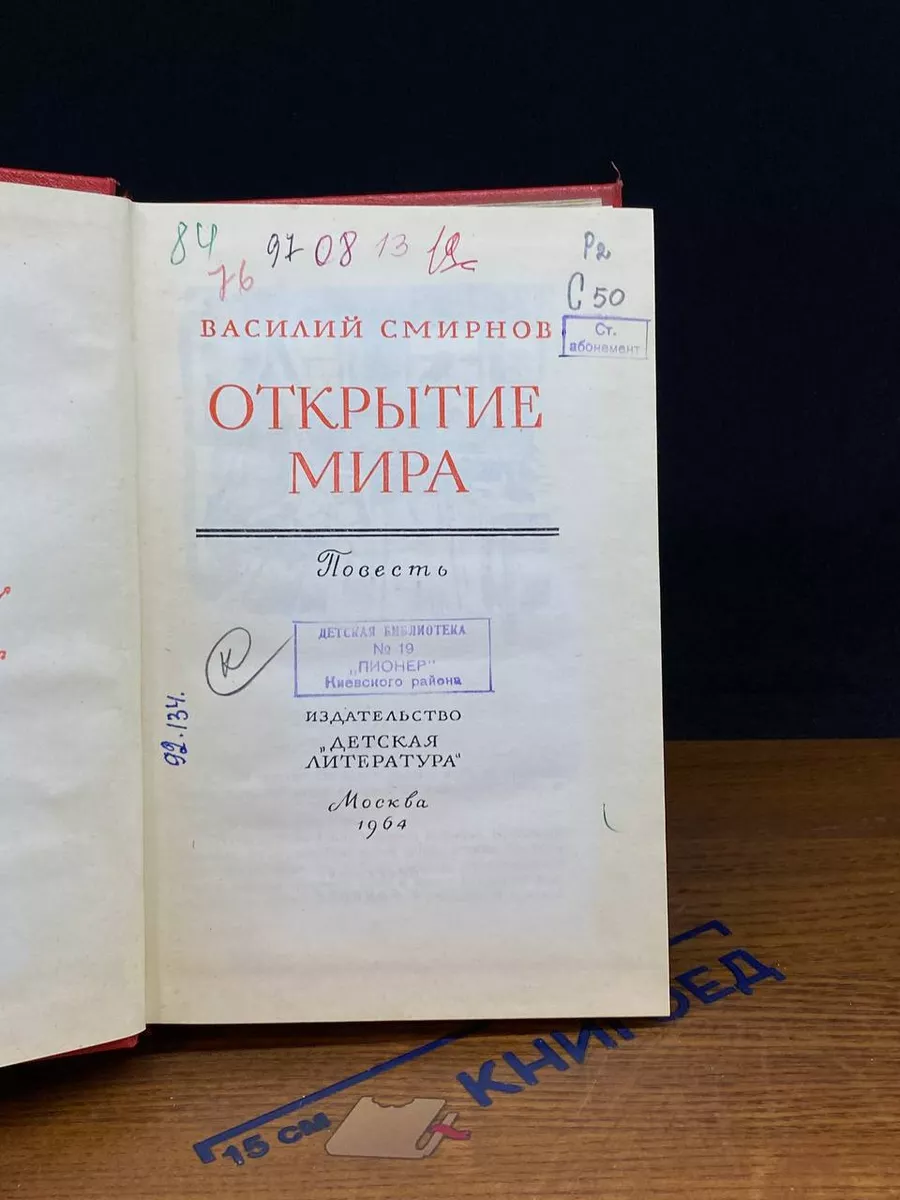 84 97 08 13
76
Р2
С 50
ВАСИЛИЙ СМИРНОВ
Ст.
абонемент
ОТКРЫТИЕ
МИРА
Повесть
ДЕТСКАЯ БИБЛИОТЕКА
№ 19
„ПИОНЕР"
Киевского района
К
92.134.
ИЗДАТЕЛЬСТВО
„ДЕТСКАЯ
ЛИТЕРАТУРА"
Москва
1964
КНИГОЕД
15 см